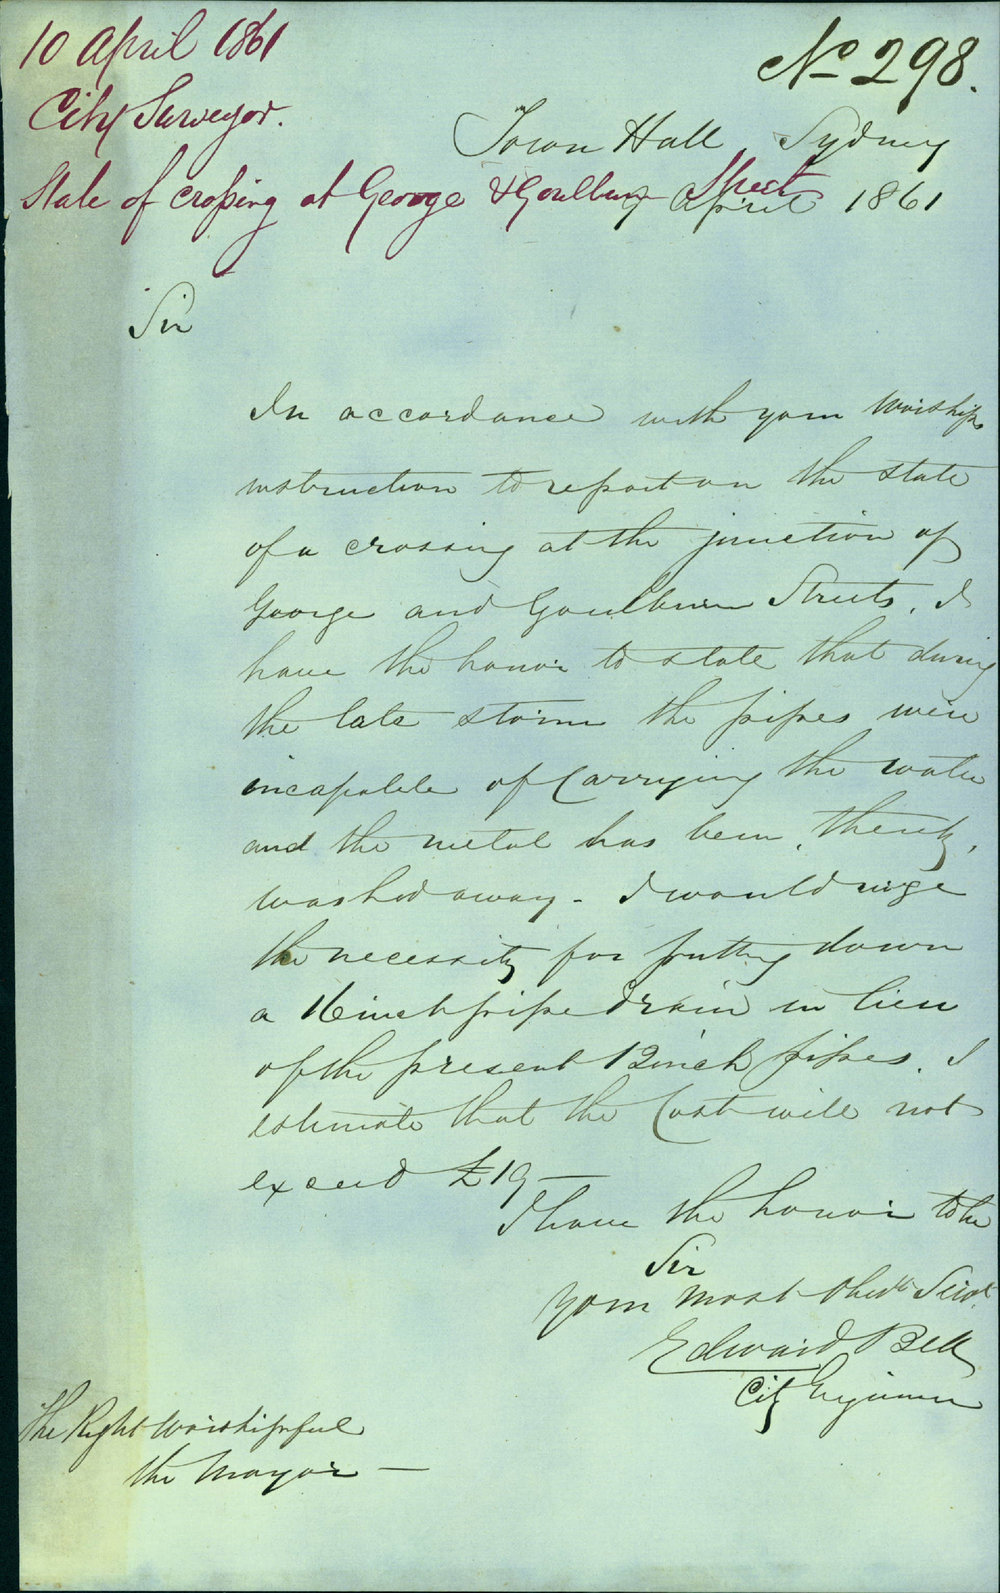 10 April 1861
City Surveyor.
State of crossing at George & Goulburn Street
No 298.
Town Hall Sydney
April 1861
Sir
In accordance with your Worships
instruction to report on the state
of a crossing at the junction of
George and Goulburn Streets, I
have the honor to state that during
the late storm the pipes were
incapable of Carrying the water
and the metal has been, thereby,
washed away - I would urge
the necessity for putting down
a 16 inch pipe drain in lieu
of the present 12 inch pipes. I
estimate that the Cost will not
exceed £19 —
I have the honor to be
Sir
Your most Obedt Servt
Edward Bell
City Engineer
The Right Worshipful
the Mayor —